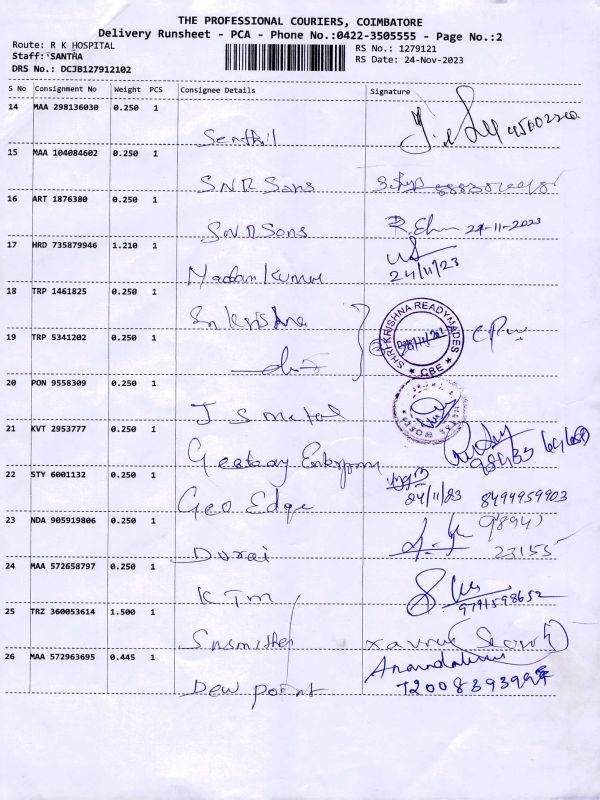 THE PROFESSIONAL COURIERS, COIMBATORE
Delivery Runsheet - PCA - Phone No.:0422-3505555 - Page No.:2
Route: R K HOSPITAL
Staff: SANTHA
DRS No.: DCJB127912102
RS No.: 1279121
RS Date: 24-Nov-2023
S No Consignment No Weight PCS Consignee Details Signature
14 MAA 298136030 0.250 1
Senthil
15 MAA 104084602 0.250 1
S.N.R Sons
16 ART 1876380 0.250 1
S.N.R Sons 24-11-2023
17 HRD 735879946 1.210 1
Madan Kumar 24/11/23
18 TRP 1461825 0.250 1
Sri Krishna
SHRI KRISHNA READYMADES
CBE
19 TRP 5341202 0.250 1
20 PON 9558309 0.250 1
J S metal
21 KVT 2953777 0.250 1
Geetway Enterprises
22 STY 6001132 0.250 1
Geo Edge 24/11/23 8494959903
23 NDA 905919806 0.250 1
Durai 98941
23155
24 MAA 572658797 0.250 1
K T M 9791598652
25 TRZ 360053614 1.500 1
26 MAA 572963695 0.445 1
Dew point